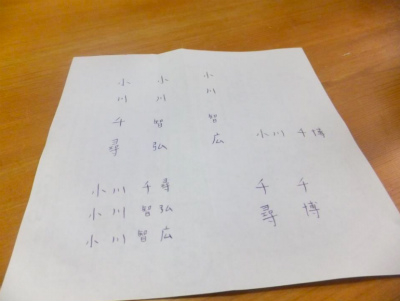 小川千尋
小川智弘
小川智広
小川 千博
小川 千尋
小川 智弘
小川 智広
千尋
千博